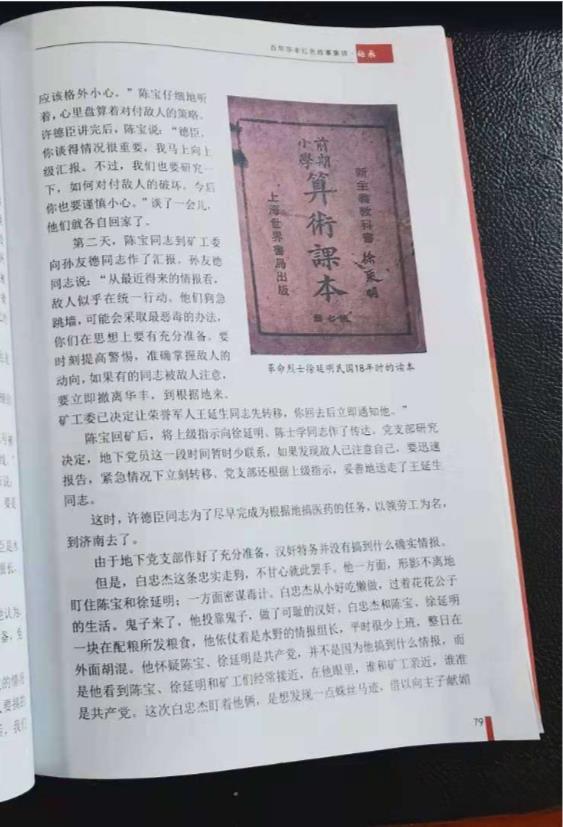 百年华丰红色故事集锦·
应该格外小心。”陈宝仔细地听
着，心里盘算着对付敌人的策略。
许德臣讲完后，陈宝说：“德臣，
你谈得情况很重要，我马上向上
级汇报。不过，我们也要研究一
下，如何对付敌人的破坏。今后
你也要谨慎小心。”谈了一会儿，
他们就各自回家了。
第二天，陈宝同志到矿工委
向孙友德同志作了汇报。孙友德
同志说：“从最近得来的情报看，
敌人似乎在统一行动。他们狗急
跳墙，可能会采取最恶毒的办法，
你们在思想上要有充分准备。要
时刻提高警惕，准确掌握敌人的
动向，如果有的同志被敌人注意，
要立即撤离华丰，到根据地来。
矿工委已决定让荣誉军人王延生同志先转移，你回去后立即通知他。”
陈宝回矿后，将上级指示向徐延明、陈士学同志作了传达。党支部研究
决定，地下党员这一段时间暂时少联系，如果发现敌人已注意自己，要迅速
报告，紧急情况下立刻转移。党支部还根据上级指示，妥善地送走了王延生
同志。
这时，许德臣同志为了尽早完成为根据地搞医药的任务，以领劳工为名，
到济南去了。
由于地下党支部作好了充分准备，汉奸特务并没有搞到什么确实情报。
但是，白忠杰这条忠实走狗，不甘心就此罢手。他一方面，形影不离地
盯住陈宝和徐延明；一方面密谋毒计。白忠杰从小好吃懒做，过着花花公子
的生活。鬼子来了，他投靠鬼子，做了可耻的汉奸。白忠杰和陈宝、徐延明
一块在配粮所发粮食，他依仗着是水野的情报组长，平时很少上班，整日在
外面胡混。他怀疑陈宝、徐延明是共产党，并不是因为他搞到什么情报，而
是他看到陈宝、徐延明和矿工们经常接近，在他眼里，谁和矿工亲近，谁准
是共产党。这次白忠杰盯着他俩，是想发现一点蛛丝马迹，借以向主子献媚
79
新主义教科书
徐延明
前期
小学
算術課本
第七册
上海世界書局出版
革命烈士徐延明民国18年时的读本